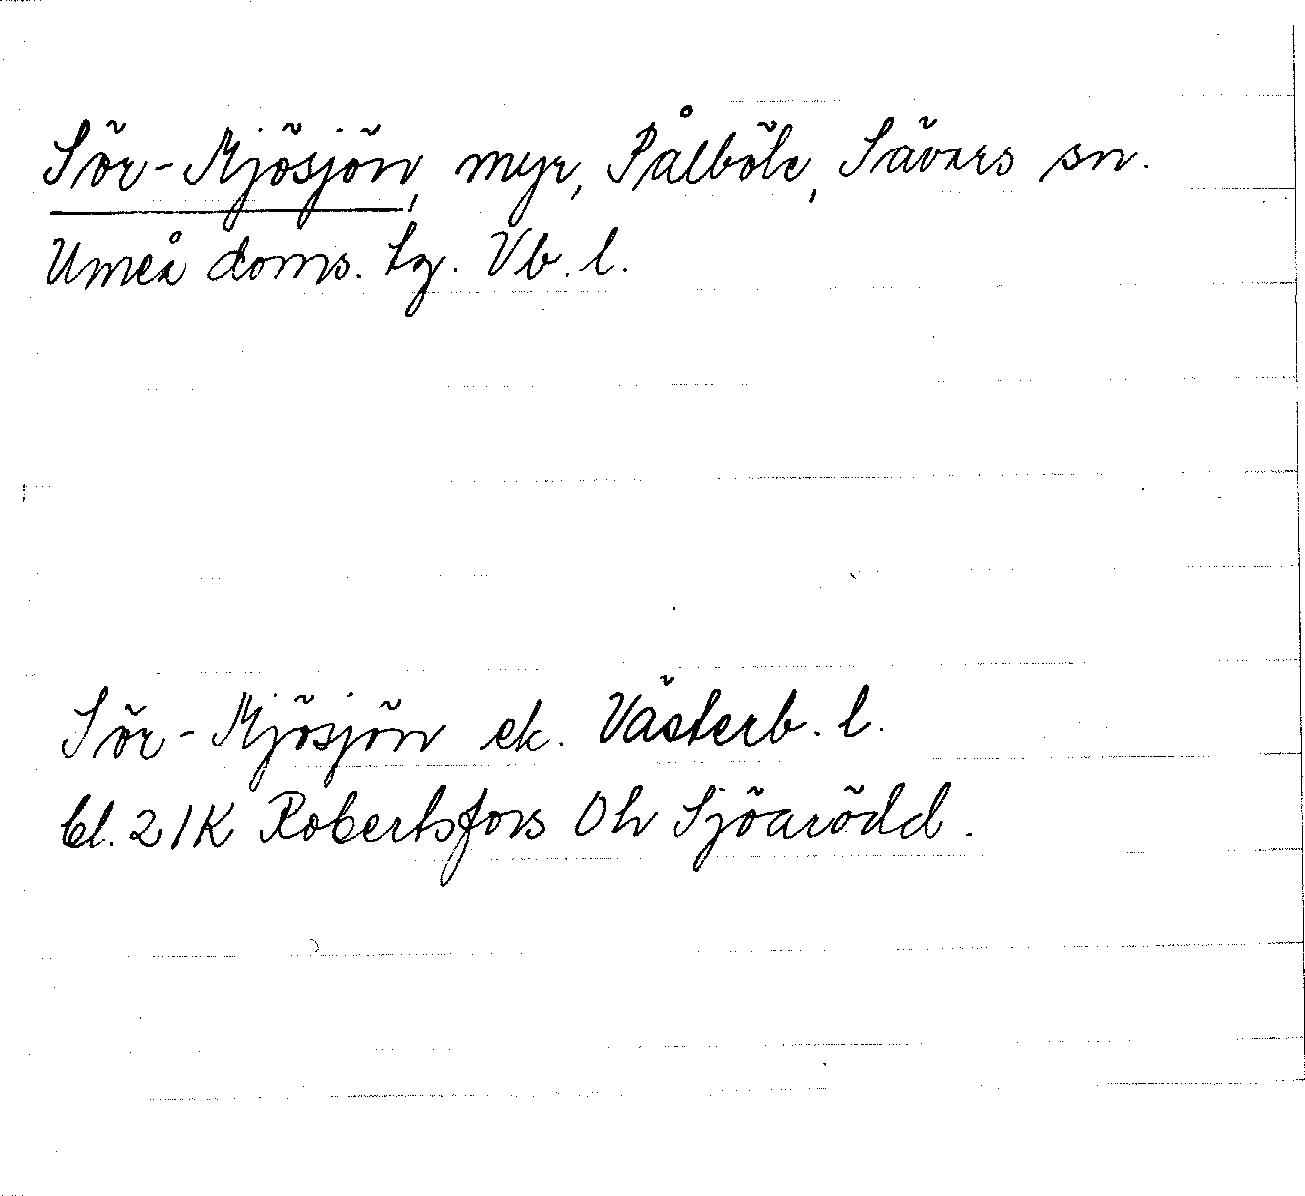 Sör-Mjösjön, myr, Pålböle, Sävars sn.
Umeå doms. tg. Vb. l.
Sör-Mjösjön ek. Västerb. l.
bl. 21K Robertsfors OLv Sjöarödd.